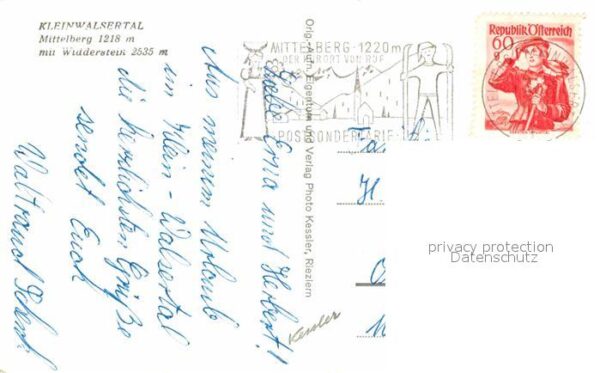 KLEINWALSERTAL
Mittelberg 1218 m
mit Widderstein 2535 m
MITTELBERG · 1220m
DER KURORT VON RUF
POSTSONDERTARIF
Republik Österreich
60
g
Liebe Erna und Herbert!
Aus meinem Urlaub
im Klein-Walsertal
die herzlichsten Grüße
sendet Euch
Waltraud
Orig.-Aufn. Eigentum und Verlag Photo Kessler, Riezlern
Kessler
privacy protection
Datenschutz